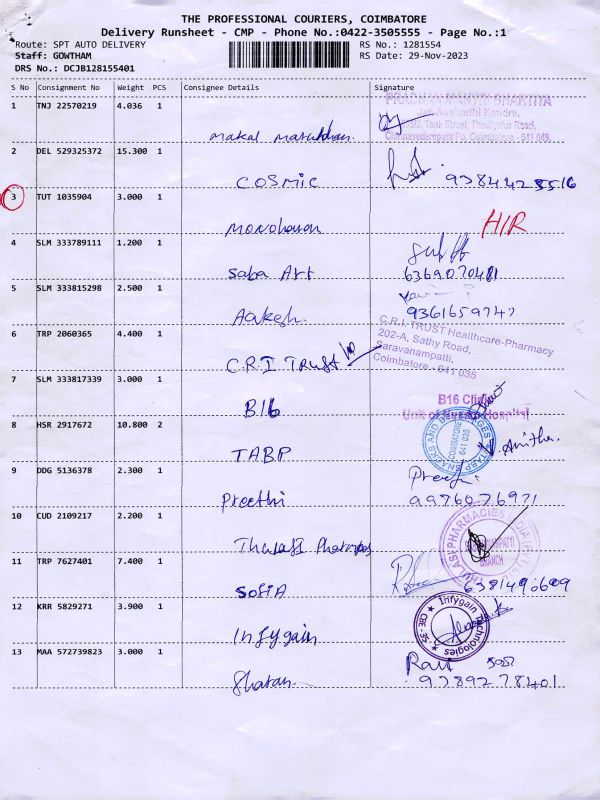 THE PROFESSIONAL COURIERS, COIMBATORE
Delivery Runsheet - CMP - Phone No.:0422-3505555 - Page No.:1
Route: SPT AUTO DELIVERY RS No.: 1281554
Staff: GOWTHAM RS Date: 29-Nov-2023
DRS No.: DCJB128155401
S No Consignment No Weight PCS Consignee Details Signature
1 TNJ 22570219 4.036 1
PRADHAN MANTRI BHARTIYA
Jan Aushadhi Kendra,
Tank Street, Thudiyalur Road,
Coimbatore - 641 049.
2 DEL 529325372 15.300 1
COSMIC
3 TUT 1035904 3.000 1
Manoharan H/R
4 SLM 333789111 1.200 1
Saba Art
5 SLM 333815298 2.500 1
Aakesh 9361659747
C.R.I. TRUST Healthcare-Pharmacy
202-A, Sathy Road,
Saravanampatti,
Coimbatore - 641 035
6 TRP 2060365 4.400 1
C.R.I TRUST
7 SLM 333817339 3.000 1
B16 Clinic
B16
8 HSR 2917672 10.800 2
TABP
SNACKS AND BEVERAGES TABP
COIMBATORE
641 035
V. Anitha.
9 DDG 5136378 2.300 1
Preethi
9976076971
10 CUD 2109217 2.200 1
BRANCH
11 TRP 7627401 7.400 1
SOFIA 6381490609
12 KRR 5829271 3.900 1
Infygain
Infygain Technologies
CBE - 35
13 MAA 572739823 3.000 1
Ravi
Sharan 9789278401